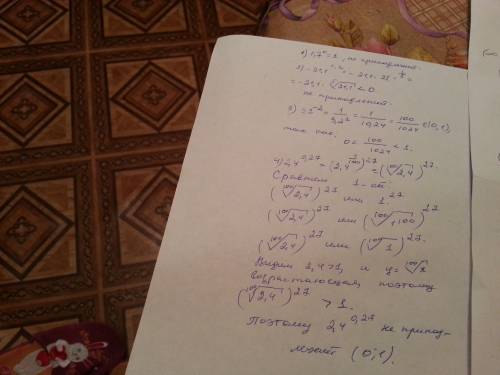 1) 1,7⁰ = 1, не принадлежит
= -21,1 · ⁵√21,1 < 0.
не принадлежит.
= 1/10,24 = 100/1024 ∈ (0,1),
так как, 0 < 100/1024 < 1.
4) 2,4^0,27 = (2,4^1/100)^27 = (¹⁰⁰√2,4)^27.
Сравним
(¹⁰⁰√2,4)^27 или 1^27
(¹⁰⁰√2,4)^27 или (¹⁰⁰√1^100)^27
(¹⁰⁰√2,4)^27 или (¹⁰⁰√1)^27.
Видим 2,4 > 1, и y = ¹⁰⁰√x
возрастающая, поэтому
(¹⁰⁰√2,4)^27 > 1.
Поэтому 2,4^0,27 не принад-
лежит (0;1).